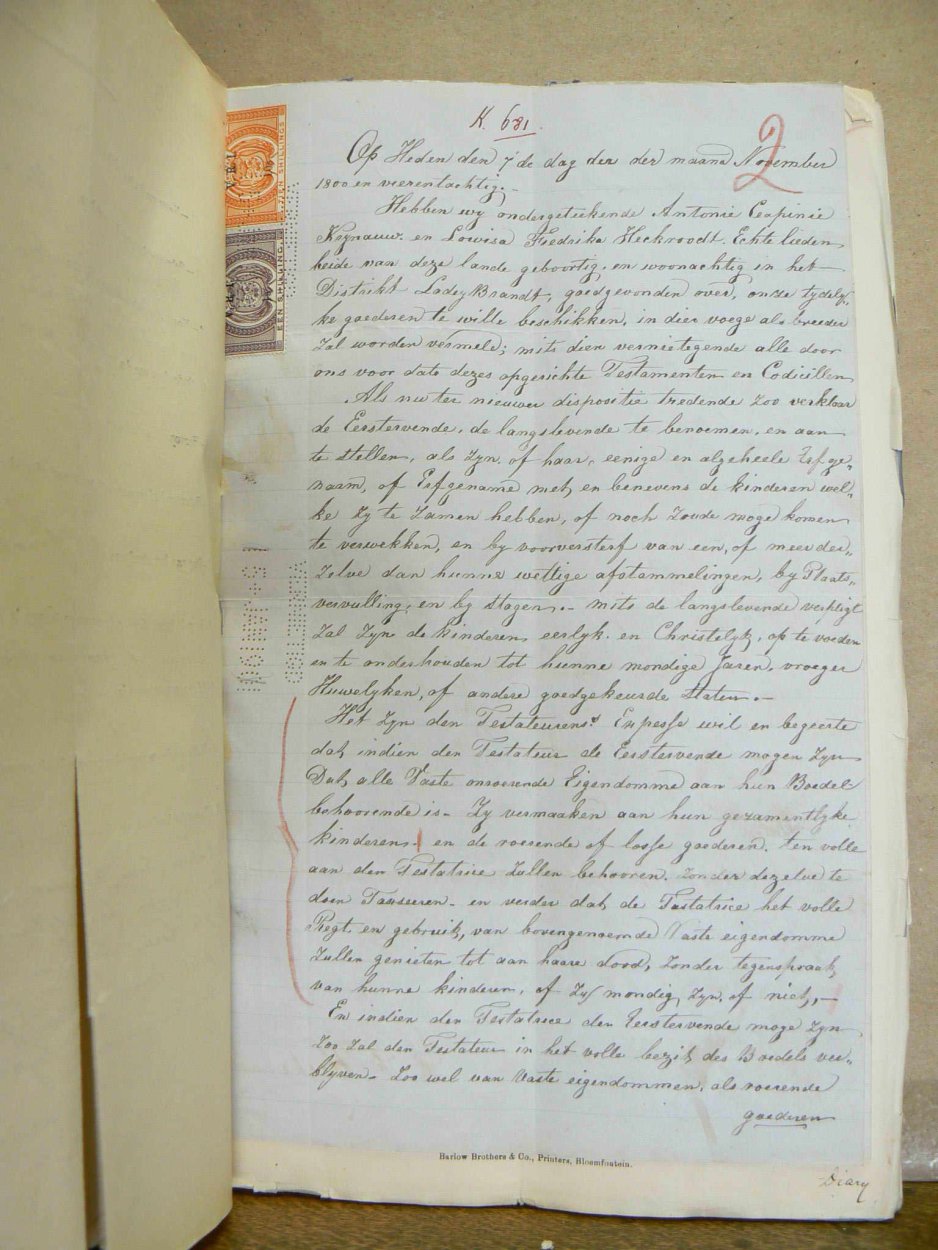 K. 681.
2
VIJF SHILLINGS
EEN SHILLING
Op Heden den 7'de dag der der maand November
1800 en vierentachtig.-
Hebben wy ondergeteekende Antonie
en Lowisa Fredrika Heckroodt. Echte lieden
beide van deze lande geboortig, en woonachtig in het
Distrikt Ladey Brandt, goedgevonden over, onze tydely-
ke goederen te wille beschikken, in dier voege als breeder
Zal worden vermeld; mits dien vernietegende alle door
ons voor dato dezes opgerichte Testamenten en Codicillen
Als nu ter nieuwer dispositie tredende Zoo verklaar
de Eerstervende, de langslevende te benoemen, en aan
te stellen, als Zyn of haar, eenige en algeheele Erfge-
naam, of Erfgename met, en benevens de kinderen wel-
ke Zy te Zamen hebben, of noch Zoude moge komen
te verwekken, en by voorversterf van een, of meer der-
Zelve dan hunne wettige afstammelingen, by Plaats-
vervulling, en by stagen.- mits de langslevende verpligt
Zal Zyn de kinderen eerlyk en Christelyk, op te voeden
en te onderhouden tot hunne mondige Jaren, vroeger
Huwelyken, of andere goedgekeurde Staten.-
Het Zyn den Testateuren Expesse wil en begeerte
dat, indien den Testateur de Eerstervende mogen Zyn
Dat, alle Vaste onroerende Eigendomme aan hun Boedel
behoorende is- Zy vermaaken aan hun gezamentlyke
kinderen- en de roerende of losse goederen. ten volle
aan den Testatrice Zullen behooren, Zonder dezelve te
doen Taxseeren- en verder dat, de Testatrice het volle
Regt, en gebruik, van bovengenoemde Vaste eigendomme
Zullen genieten tot aan haare dood, Zonder tegenspraak,
van hunne kinderen, of Zy mondig Zyn of niet,-
En indien den Testatrice den Eerstervende moge Zyn
Zoo Zal den Testateur in het volle bezit, des Boedels ver-
blyven- Zoo wel van Vaste eigendommen, als roerende
goederen
Barlow Brothers & Co., Printers, Bloemfontein.
Diary